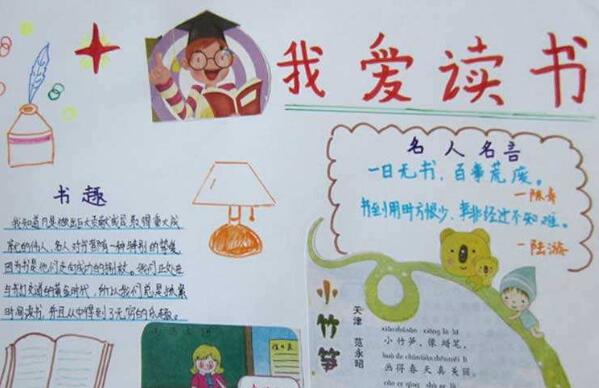 我爱读书
书趣
我知道凡是做出巨大贡献或 得重大成
就的伟人、名人对书 有一种特别的挚爱,
因为书是他们走向成功的阶梯。我们正处在
与书打交道的黄金时代,所以我们总是
时间读书,并且从中得到了无穷的乐趣。
名人名言
一日无书,百事荒废。
—陈寿
书到用时方恨少、事非经过不知难。
—陆游
小竹笋
天津 范永昭
xiǎo zhú sǔn xiàng là bǐ
小竹笋,像蜡笔,
huà de chūn tiān zhēn měi lì
画得春天真美丽。